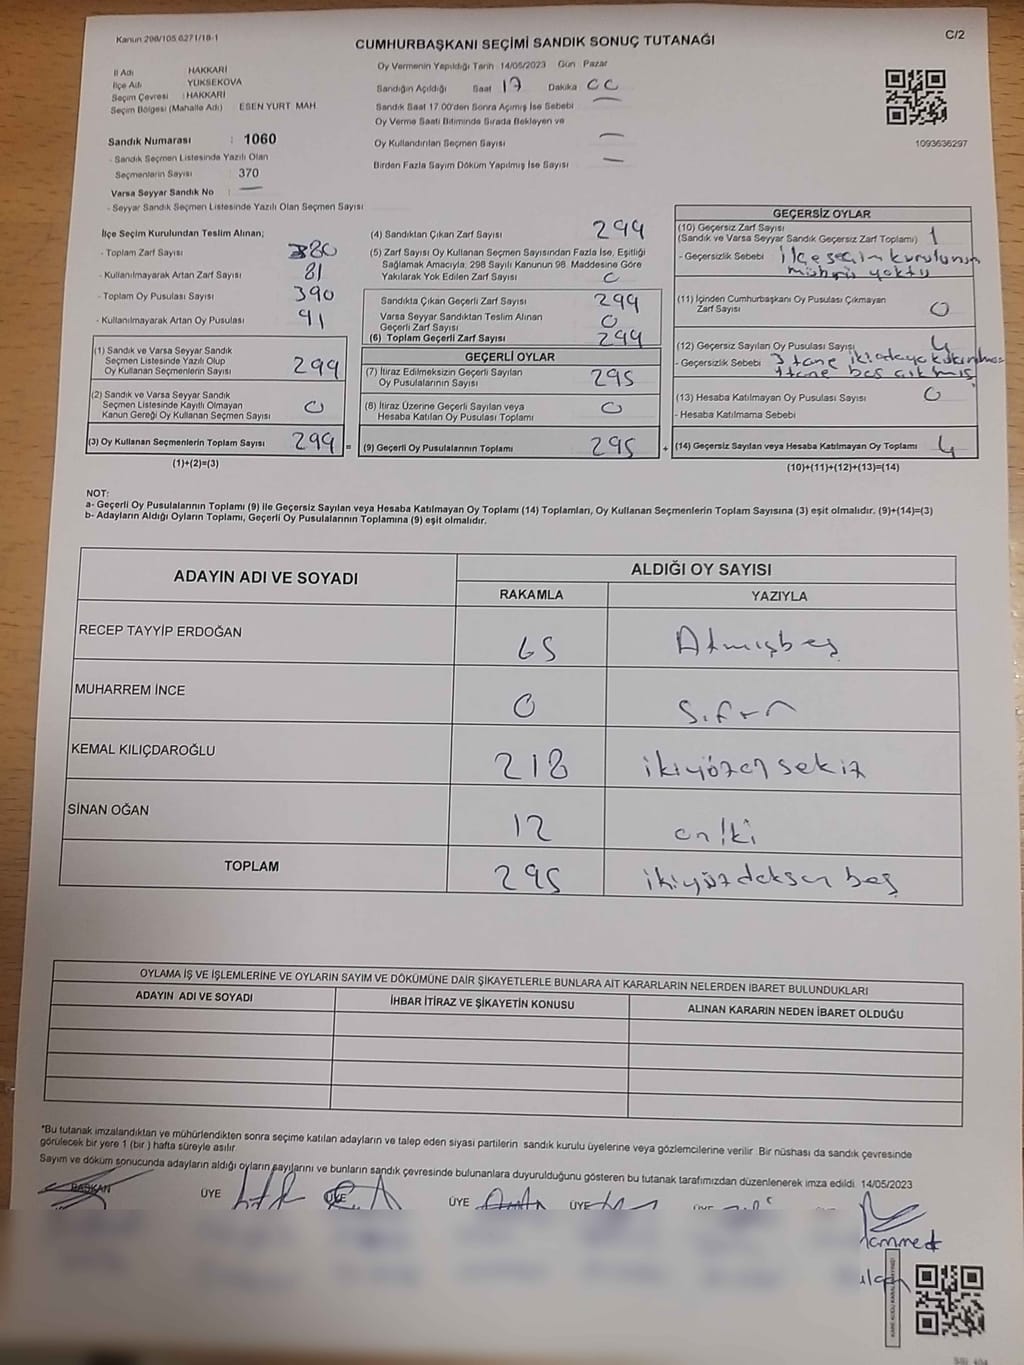 Kanun 298/105,6271/18-1
CUMHURBAŞKANI SEÇİMİ SANDIK SONUÇ TUTANAĞI
C/2
İl Adı : HAKKARİ
İlçe Adı : YÜKSEKOVA
Seçim Çevresi : HAKKARİ
Seçim Bölgesi (Mahalle Adı) : ESEN YURT MAH.
Sandık Numarası : 1060
- Sandık Seçmen Listesinde Yazılı Olan
Seçmenlerin Sayısı : 370
Varsa Seyyar Sandık No : —
- Seyyar Sandık Seçmen Listesinde Yazılı Olan Seçmen Sayısı
Oy Vermenin Yapıldığı Tarih : 14/05/2023 Gün : Pazar
Sandığın Açıldığı Saat 17 Dakika 00
Sandık Saat 17.00'den Sonra Açımış İse Sebebi —
Oy Verme Saati Bitiminde Sırada Bekleyen ve
Oy Kullandırılan Seçmen Sayısı —
Birden Fazla Sayım Döküm Yapılmış İse Sayısı —
1093636297
İlçe Seçim Kurulundan Teslim Alınan;
- Toplam Zarf Sayısı 380
- Kullanılmayarak Artan Zarf Sayısı 81
- Toplam Oy Pusulası Sayısı 390
- Kullanılmayarak Artan Oy Pusulası 91
(1) Sandık ve Varsa Seyyar Sandık
Seçmen Listesinde Yazılı Olup
Oy Kullanan Seçmenlerin Sayısı 299
(2) Sandık ve Varsa Seyyar Sandık
Seçmen Listesinde Kayıtlı Olmayan
Kanun Gereği Oy Kullanan Seçmen Sayısı 0
(3) Oy Kullanan Seçmenlerin Toplam Sayısı 299 =
(1)+(2)=(3)
(4) Sandıktan Çıkan Zarf Sayısı 299
(5) Zarf Sayısı Oy Kullanan Seçmen Sayısından Fazla İse, Eşitliği
Sağlamak Amacıyla, 298 Sayılı Kanunun 98. Maddesine Göre
Yakılarak Yok Edilen Zarf Sayısı 0
Sandıkta Çıkan Geçerli Zarf Sayısı 299
Varsa Seyyar Sandıktan Teslim Alınan
Geçerli Zarf Sayısı 0
(6) Toplam Geçerli Zarf Sayısı 299
GEÇERLİ OYLAR
(7) İtiraz Edilmeksizin Geçerli Sayılan
Oy Pusulalarının Sayısı 295
(8) İtiraz Üzerine Geçerli Sayılan veya
Hesaba Katılan Oy Pusulası Toplamı 0
(9) Geçerli Oy Pusulalarının Toplamı 295 +
GEÇERSİZ OYLAR
(10) Geçersiz Zarf Sayısı
(Sandık ve Varsa Seyyar Sandık Geçersiz Zarf Toplamı) 1
- Geçersizlik Sebebi ilçe seçim kurulunun
mührü yoktu
(11) İçinden Cumhurbaşkanı Oy Pusulası Çıkmayan
Zarf Sayısı 0
(12) Geçersiz Sayılan Oy Pusulası Sayısı 4
- Geçersizlik Sebebi 3 tane iki adaya
1 tane boş çıkmış
(13) Hesaba Katılmayan Oy Pusulası Sayısı 0
- Hesaba Katılmama Sebebi
(14) Geçersiz Sayılan veya Hesaba Katılmayan Oy Toplamı 4
(10)+(11)+(12)+(13)=(14)
NOT:
a- Geçerli Oy Pusulalarının Toplamı (9) ile Geçersiz Sayılan veya Hesaba Katılmayan Oy Toplamı (14) Toplamları, Oy Kullanan Seçmenlerin Toplam Sayısına (3) eşit olmalıdır. (9)+(14)=(3)
b- Adayların Aldığı Oyların Toplamı, Geçerli Oy Pusulalarının Toplamına (9) eşit olmalıdır.
ADAYIN ADI VE SOYADI ALDIĞI OY SAYISI
RAKAMLA YAZIYLA
RECEP TAYYİP ERDOĞAN 65 Atmışbeş
MUHARREM İNCE 0 Sıfır
KEMAL KILIÇDAROĞLU 218 ikiyüzon sekiz
SİNAN OĞAN 12 on iki
TOPLAM 295 ikiyüzdoksan beş
OYLAMA İŞ VE İŞLEMLERİNE VE OYLARIN SAYIM VE DÖKÜMÜNE DAİR ŞİKAYETLERLE BUNLARA AİT KARARLARIN NELERDEN İBARET BULUNDUKLARI
ADAYIN ADI VE SOYADI İHBAR İTİRAZ VE ŞİKAYETİN KONUSU ALINAN KARARIN NEDEN İBARET OLDUĞU
*Bu tutanak imzalandıktan ve mühürlendikten sonra seçime katılan adayların ve talep eden siyasi partilerin sandık kurulu üyelerine veya gözlemcilerine verilir. Bir nüshası da sandık çevresinde
görülecek bir yere 1 (bir ) hafta süreyle asılır.
Sayım ve döküm sonucunda adayların aldığı oyların sayılarını ve bunların sandık çevresinde bulunanlara duyurulduğunu gösteren bu tutanak tarafımızdan düzenlenerek imza edildi. 14/05/2023
BAŞKAN ÜYE ÜYE ÜYE ÜYE